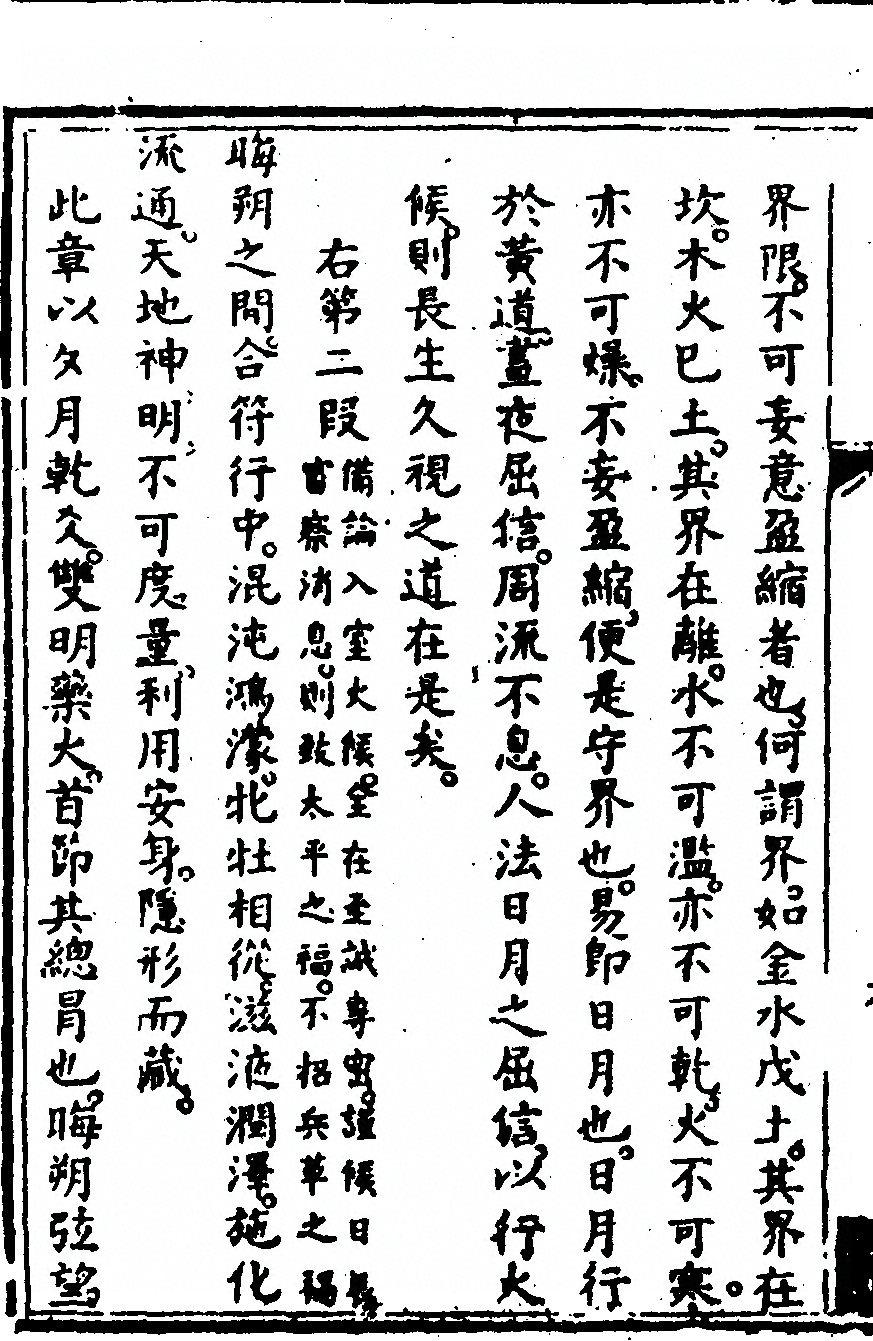 界限。不可妄意盈縮者也。何謂界。如金水戊土。其界在
坎。木火巳土。其界在離。水不可濫。亦不可乾。火不可寒。
亦不可燥。不妄盈縮。便是守界也。易即日月也。日月行
於黃道。晝夜屈信。周流不息。人法日月之屈信。以行火
候。則長生久視之道在是矣。
右第二段
備論入室火候。全在至誠專密。謹候日辰
審察消息。則致太平之福。不招兵革之禍
晦朔之間。合符行中。混沌鴻濛。牝牡相從。滋液潤澤。施化
流通。天地神明。不可度量。利用安身。隱形而藏。
此章以爻月乾爻。雙明藥火。首節其總冒也。晦朔弦望